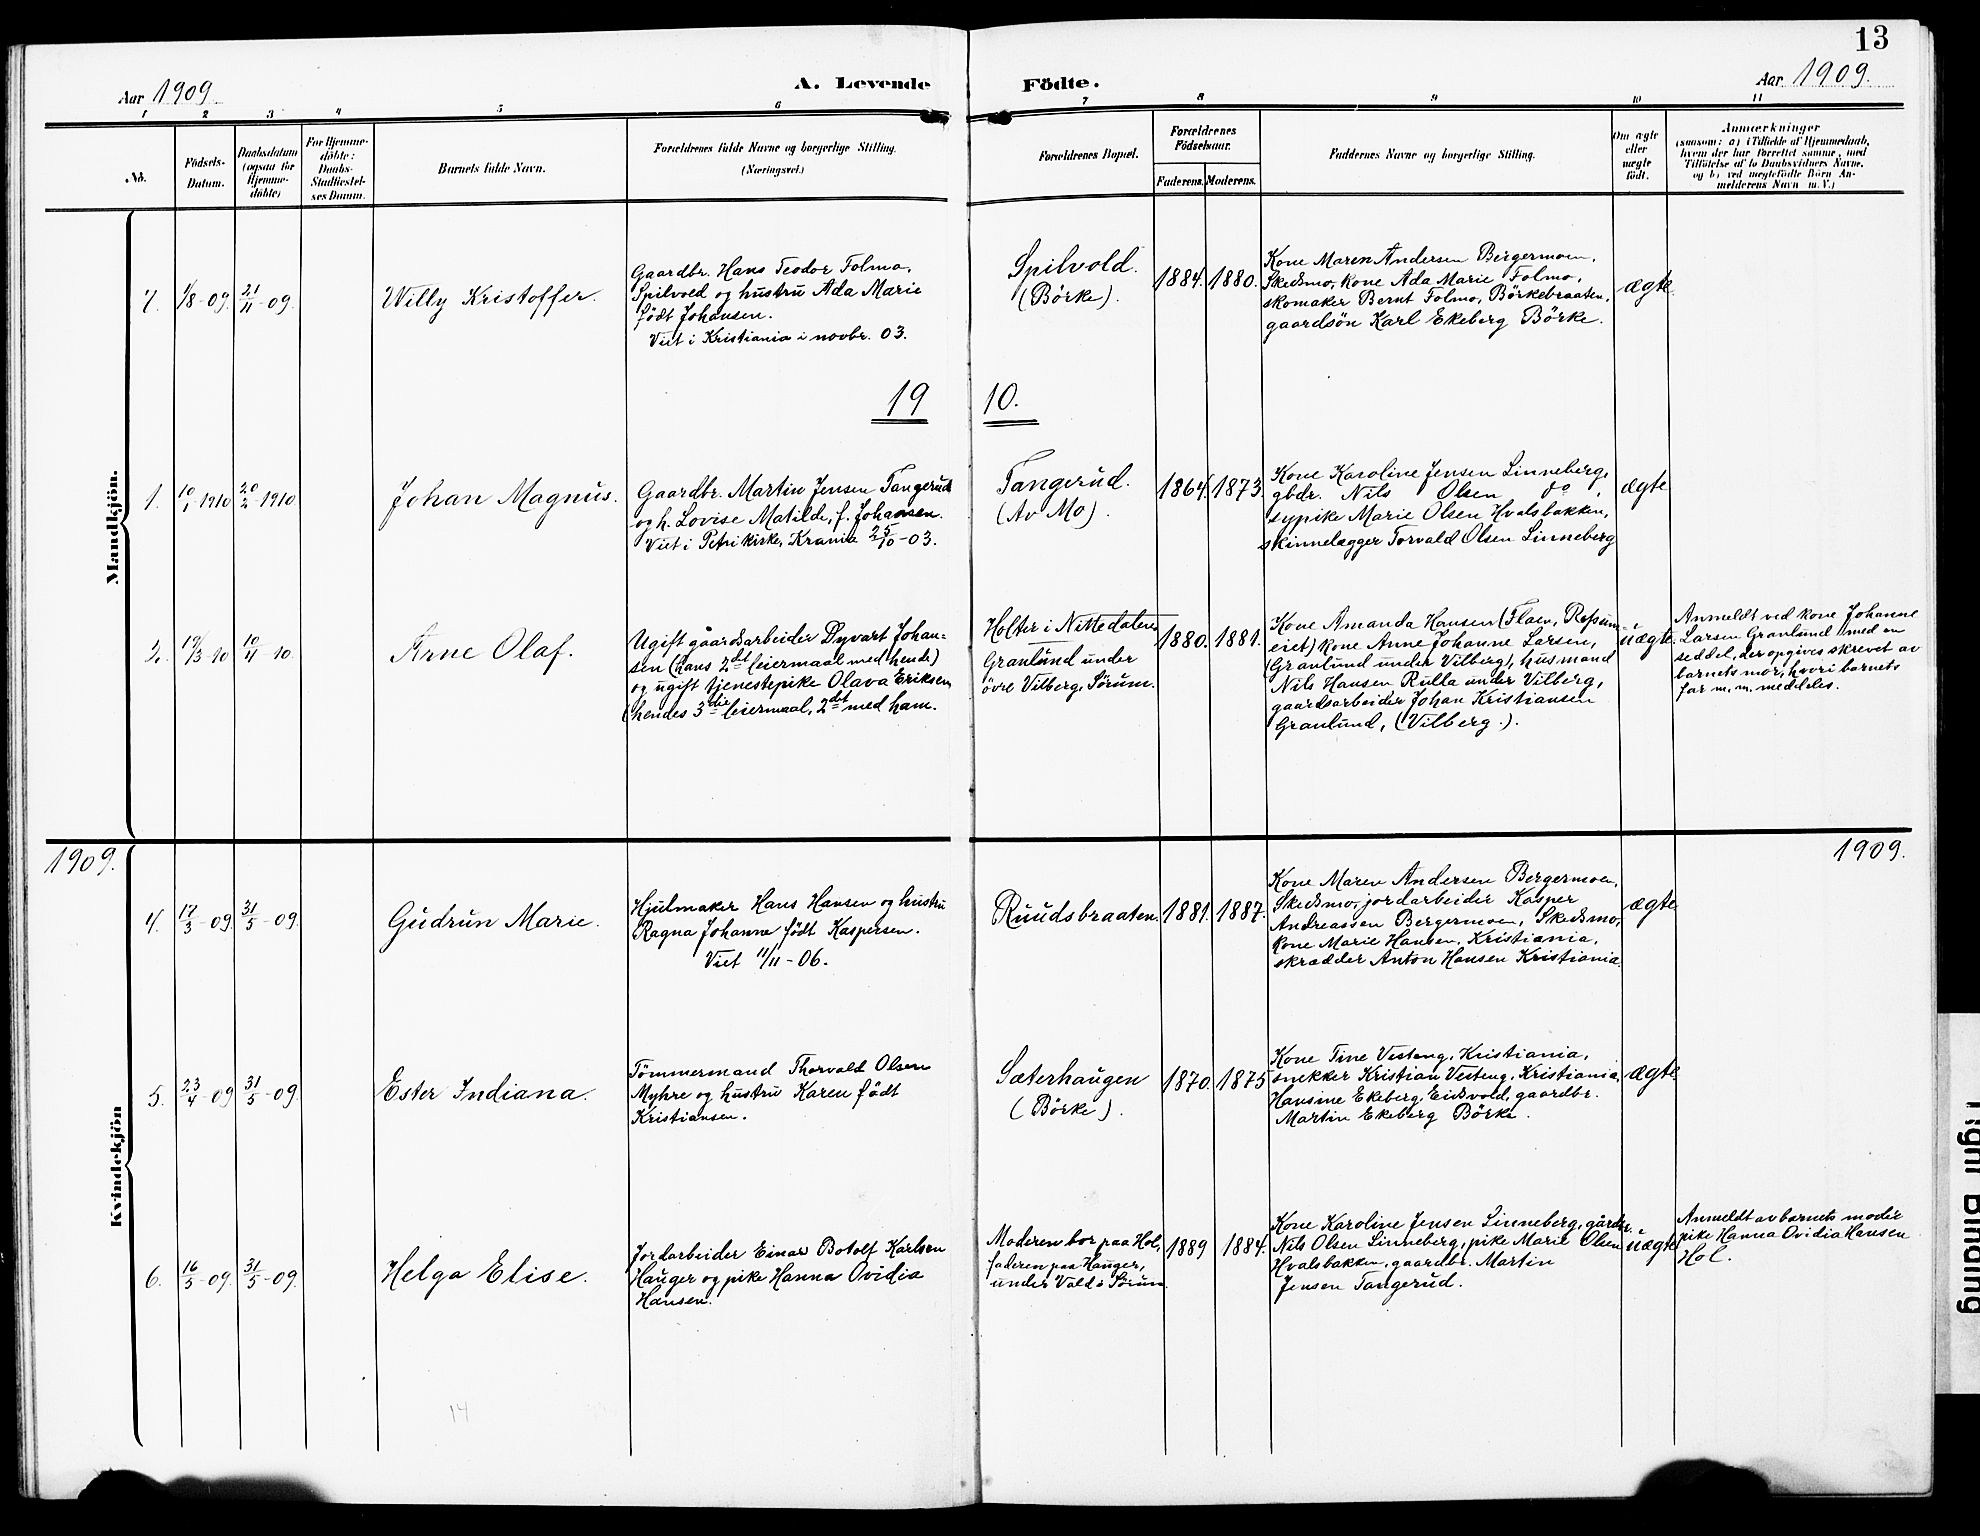 13
Aar 1909.
A. Levende Födte.
Aar 1909.
1 2 3 4 5 6 7 8 9 10 11
No.
Födsels-
Datum.
Daabsdatum
(ogsaa for
Hjemme-
döbte)
For Hjemme-
döbte:
Daabs-
Stadfæstel-
ses Datum.
Barnets fulde Navn.
Forældrenes fulde Navne og borgerlige Stilling.
(Næringsvei.)
Forældrenes Bopæl.
Forældrenes
Födselsaar.
Faderens. Moderens.
Faddernes Navne og borgerlige Stilling.
Om ægte
eller
uægte
födt.
Anmærkninger
(saasom: a) i Tilfælde af Hjemmedaab,
hvem der har forrettet samme, med
Tilföielse af to Daabsvidners Navne,
og b) ved uægtefödte Börn An-
melderens Navn m. V.)
Mandkjön.
7.
1/8-09.
21/11-09.
Willy Kristoffer.
Gaardbr. Hans Teodor Folmo,
Spilvold og hustru Ada Marie
född Johansen.
Viet i Kristiania i novbr. 03.
Spilvold.
(Börke).
1884. 1880.
Kone Maren Andersen Bergermoen,
Skedsmo, kone Ada Marie Folmo,
skomaker Bernt Folmo, Börkebraaten,
gaardsön Karl Ekeberg Börke.
ægte
19 10.
1.
10/1-1910
20/2-1910.
Johan Magnus.
Gaardbr. Martin Jensen Tangerud
og h. Lovise Matilde, f. Johansen.
Viet i Petri kirke, Krania 25/10-03.
Tangerud.
(Av Mo).
1864. 1873.
Kone Karoline Jensen Linneberg,
gbdr. Nils Olsen do,
sypike Marie Olsen Hvalsbakken,
skinnelægger Torvald Olsen Linneberg
ægte
2.
19/3-10
10/4-10.
Arne Olaf.
Ugift gaardsarbeider Dyvart Johan=
sen (hans 2det leiermaal med hende)
og ugift tjenestepike Olava Eriksen
(hendes 3die leiermaal, 2det med ham.
Holter i Nittedalen
Granlund under
övre Vilberg, Sörum.
1880. 1881.
Kone Amanda Hansen (Flaen, Refsum-
eiet) kone Anne Johanne Larsen,
(Granlund under Vilberg), husmand
Nils Hansen Rulla under Vilberg,
gaardsarbeider Johan Kristiansen
Granlund, (Vilberg.).
uægte.
Anmeldt ved kone Johanne
Larsen Granlund med en
seddel, der opgives skrevet av
barnets mor, hvori barnets
far m.m. meddeles.
1909.
1909.
Kvindekjön
4.
17/3-09.
31/5-09.
Gudrun Marie.
Hjulmaker Hans Hansen og hustru
Ragna Johanne född Kaspersen.
Viet 11/11-06.
Ruudsbraaten.
1881. 1887.
Kone Maren Andersen Bergermoen,
Skedsmo, jordarbeider Kasper
Andreassen Bergermoen, Skedsmo,
kone Marie Hansen, Kristiania,
skrædder Anton Hansen Kristiania.
ægte
5.
23/4-09
31/5-09.
Ester Indiana.
Tömmermand Thorvald Olsen
Myhre og hustru Karen född
Kristiansen.
Sæterhaugen
(Börke).
1870. 1875
Kone Tine Vesteng, Kristiania,
snekker Kristian Vesteng, Kristiania,
Hansine Ekeberg, Eidsvold, gaardbr.
Martin Ekeberg Börke.
ægte
6.
16/5-09.
31/5-09.
Helga Elise.
Jordarbeider Einar Botolf Karlsen
Hauger og pike Hanna Ovidia
Hansen.
Moderen bor paa Hol,
faderen paa Hauger,
under Vald i Sörum.
1889 1884.
Kone Karoline Jensen Linneberg, gårdbr.
Nils Olsen Linneberg, pike Marie Olsen
Hvalsbakken, gaardbr. Martin
Jensen Tangerud.
uægte
Anmeldt av barnets moder
pike Hanna Ovidia Hansen
Hol.
14
Tight Binding